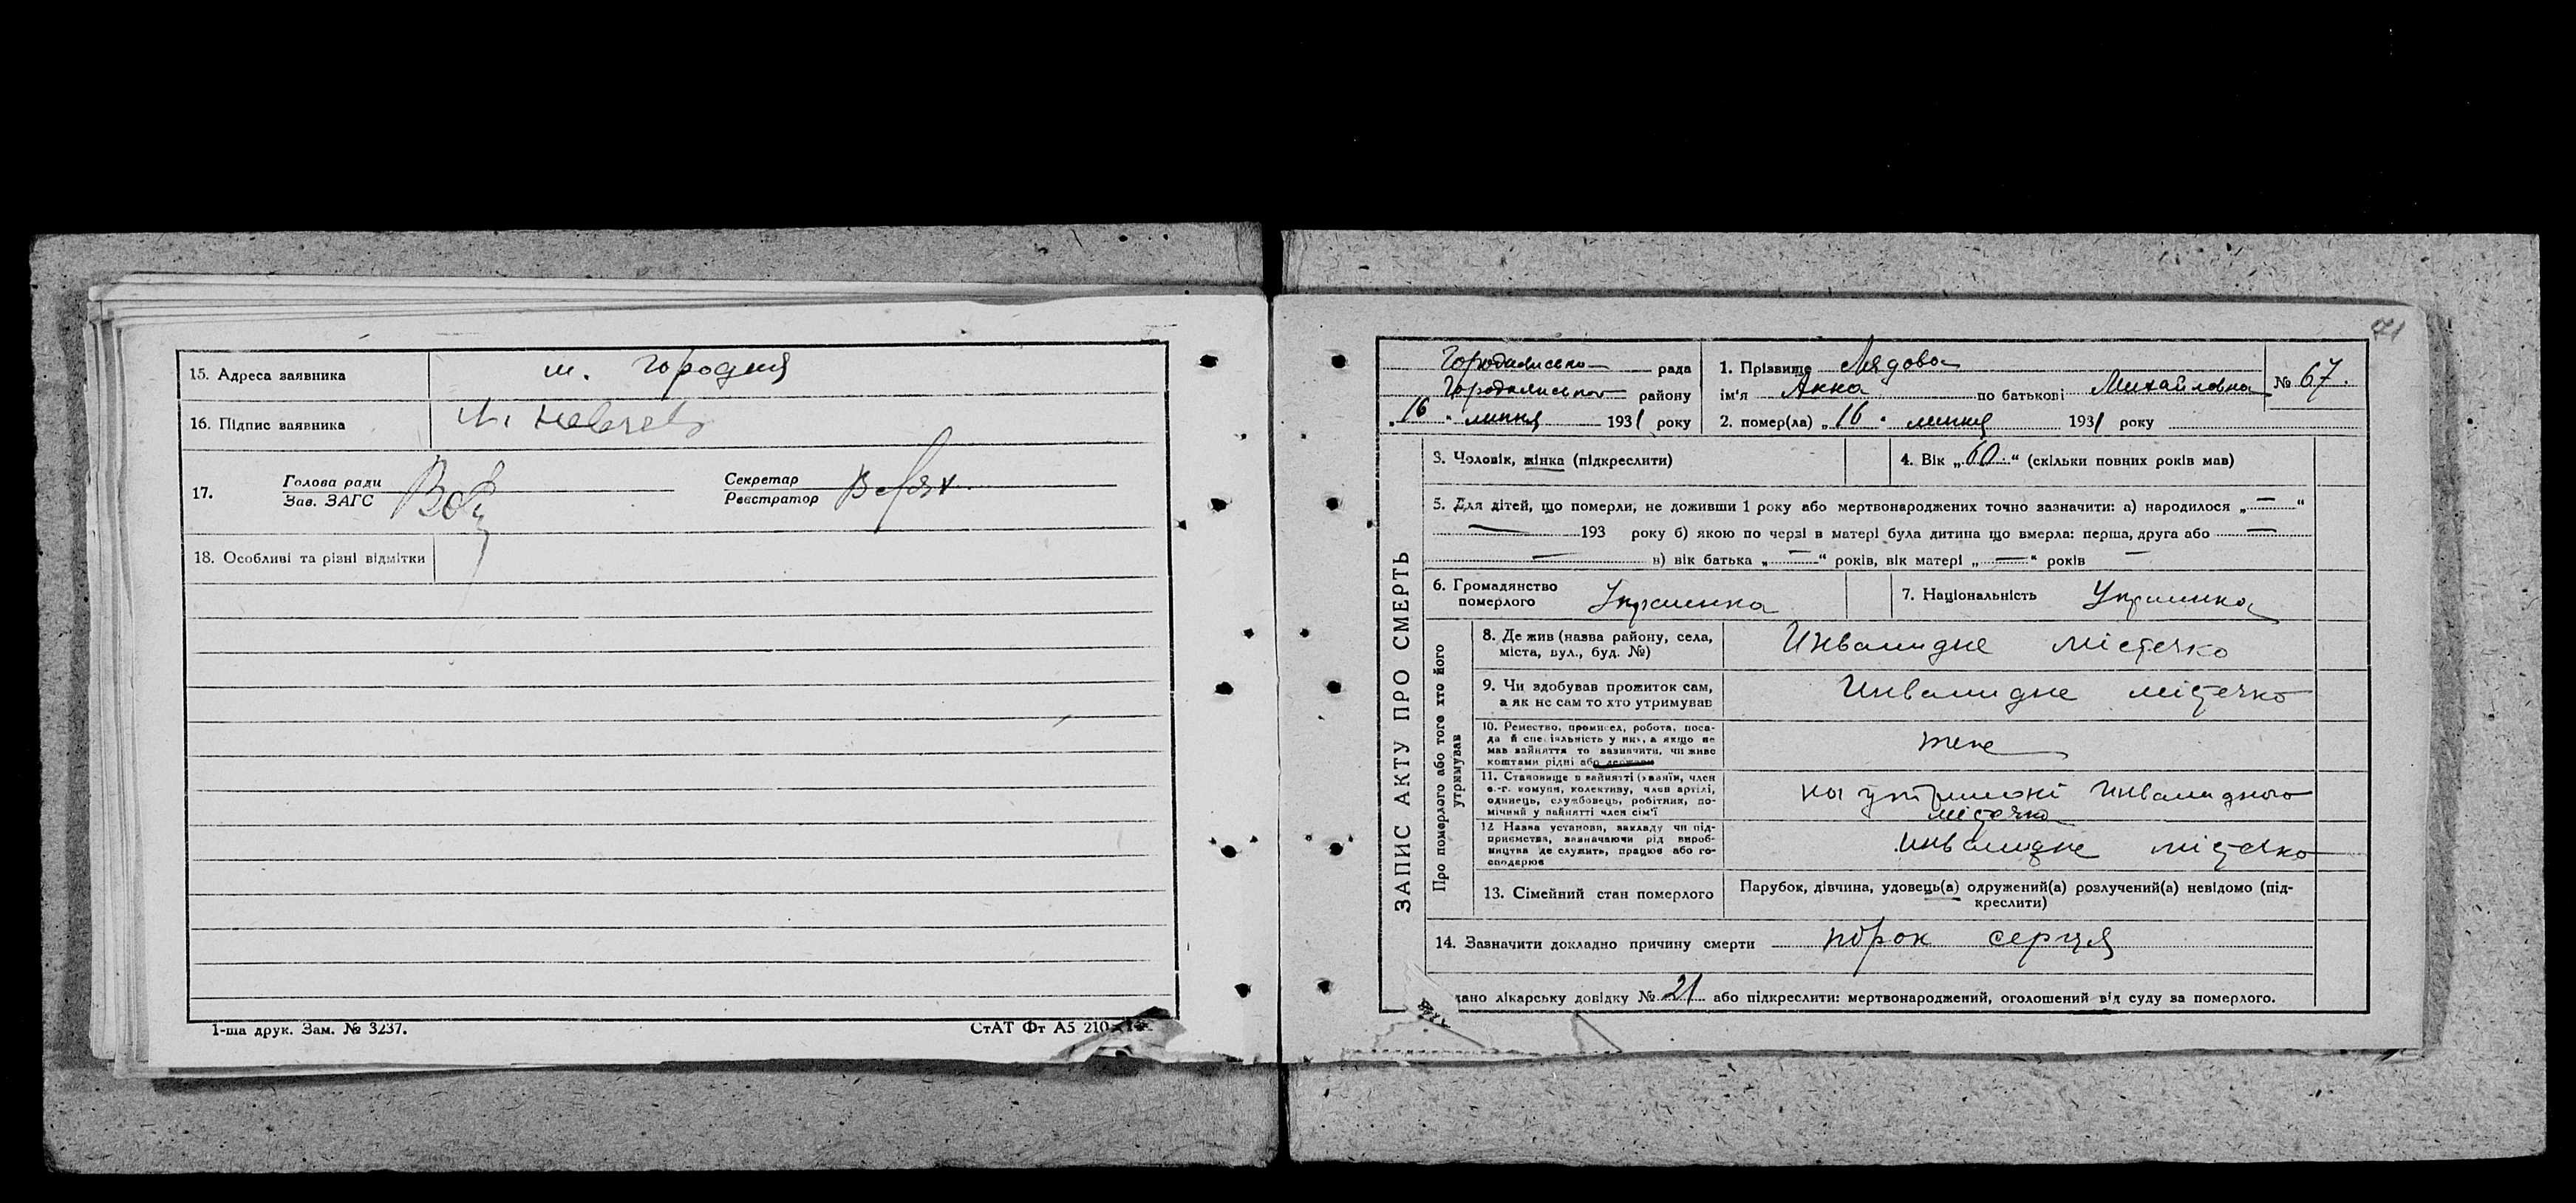 15. Адреса заявника м. Городня
16. Підпис заявника
17. Голова ради Зав. ЗАГС Секретар Реєстратор
18. Особливі та різні відмітки
1-ша друк. Зам. № 3237.
СтАТ Фт А5 210
71
рада
району
„16" липня 1931 року
1. Прізвище Лядова
ім'я Анна по батькові Михайловна
№ 67.
2. помер(ла) „16" липня 1931 року
ЗАПИС АКТУ ПРО СМЕРТЬ
3. Чоловік, жінка (підкреслити)
4. Вік „60." (скільки повних років мав)
5. Для дітей, що померли, не доживши 1 року або мертвонароджених точно зазначити: а) народилося „—"
— 193 року б) якою по черзі в матері була дитина що вмерла: перша, друга або —
— в) вік батька „—" років, вік матері „—" років —
6. Громадянство
померлого Украинка
7. Національність Украинка
Про померлого або того хто його
утримував
8. Де жив (назва району, села,
міста, вул., буд. №) Инвалидне містечко
9. Чи здобував прожиток сам,
а як не сам то хто утримував Инвалидне містечко
10. Ремество, промисел, робота, поса-
да й спеціяльність у них, а якщо не
мав зайняття то зазначити, чи живе
коштами рідні або держави
11. Становище в зайнятті (хазяїн, член
с.-г. комуни, колективу, член артілі,
одинець, службовець, робітник, по-
мічний у зайнятті член сім'ї
на утриманні Инвалидного
містечка
12 Назва установи, закладу чи під-
приємства, зазначаючи рід вироб-
ництва де служить, працює або го-
сподарює
Инвалидне містечко
13. Сімейний стан померлого Парубок, дівчина, удовець(а) одружений(а) розлучений(а) невідомо (під-
креслити)
14. Зазначити докладно причину смерти порок серця
дано лікарську довідку № 21 або підкреслити: мертвонароджений, оголошений від суду за померлого.